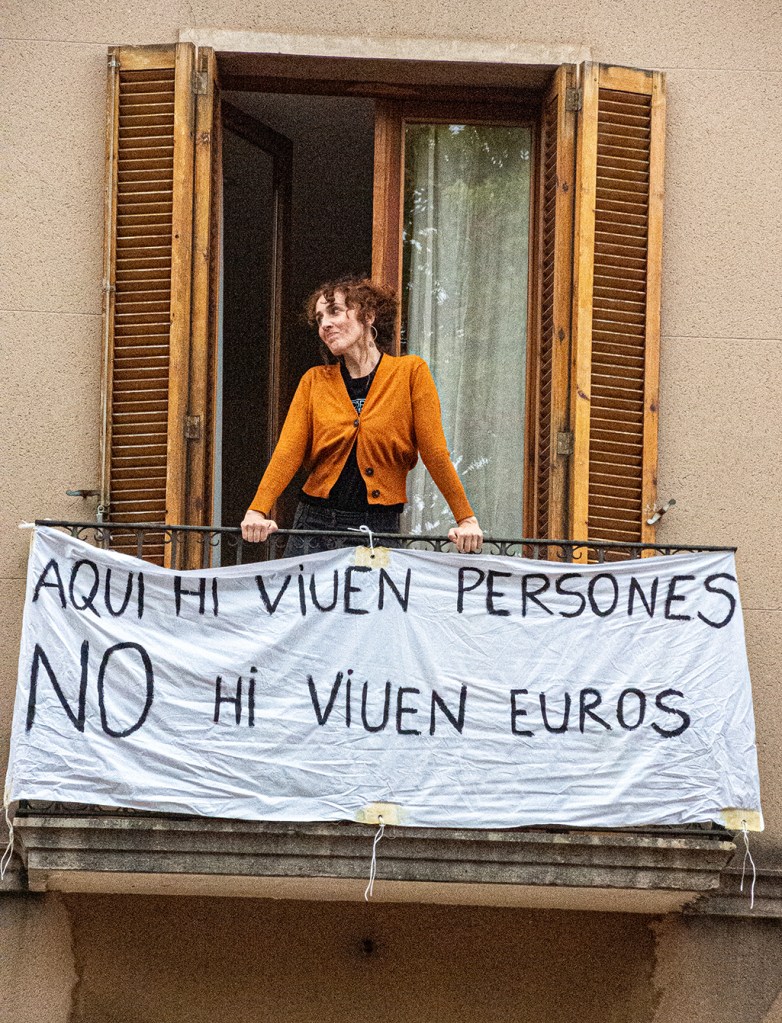 AQUI HI VIUEN PERSONES
NO HI VIUEN EUROS